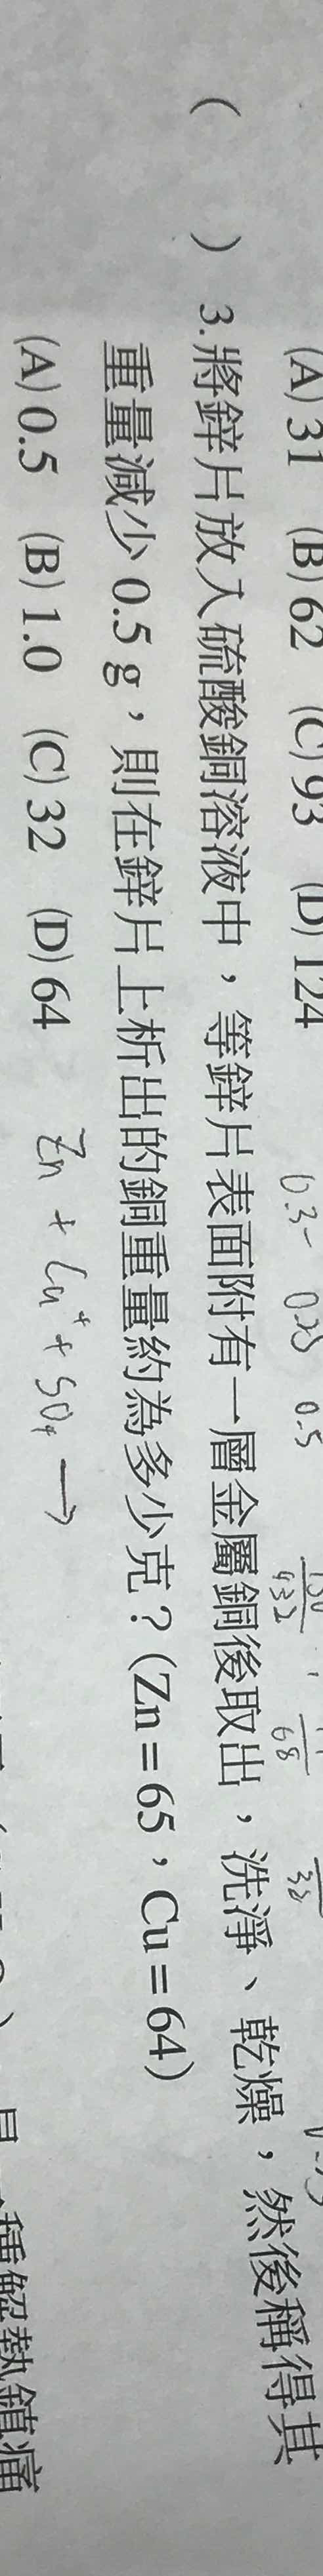 (A) 31 (B) 62 (C) 93 (D) 124
0.5
432
68
( ) 3.將鋅片放入硫酸銅溶液中，等鋅片表面附有一層金屬銅後取出，洗淨、乾燥，然後稱得其
重量減少 0.5 g，則在鋅片上析出的銅重量約為多少克？(Zn＝65，Cu＝64)
(A) 0.5 (B) 1.0 (C) 32 (D) 64
Zn + Cu⁺ + SO₄ →
種解熱鎮痛